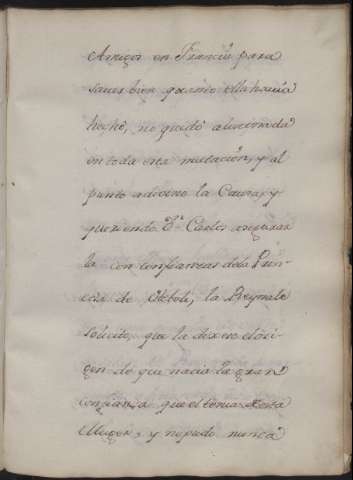 Amigos en Francia para
saver bien quando ella havia
hecho, no quedò alucinada
en toda esta mutacion, y al
punto adivinò la Causa, y
queriendo Dⁿ Carlos asegurar
la con confianzas de la Prin-
cesa de Eboli, la Reyna le
solicitò, que la dixese el ori-
gen de que nacia la gran
confianza que el tenia de esta
Muger, y no pudo nunca